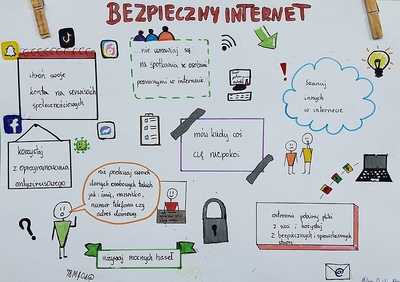 BEZPIECZNY INTERNET
chroń swoje
konta na serwisach
społecznościowych
nie umawiaj się
na spotkania z osobami
poznanymi w internecie
Szanuj
innych
w internecie
korzystaj
z oprogramowania
antywirusowego
mów kiedy coś
cię niepokoi
nie podawaj swoich
danych osobowych takich
jak: imię, nazwisko,
numer telefonu czy
adres domowy
ostrożnie pobieraj pliki
z sieci i korzystaj
z bezpiecznych i sprawdzonych
stron
używaj mocnych haseł